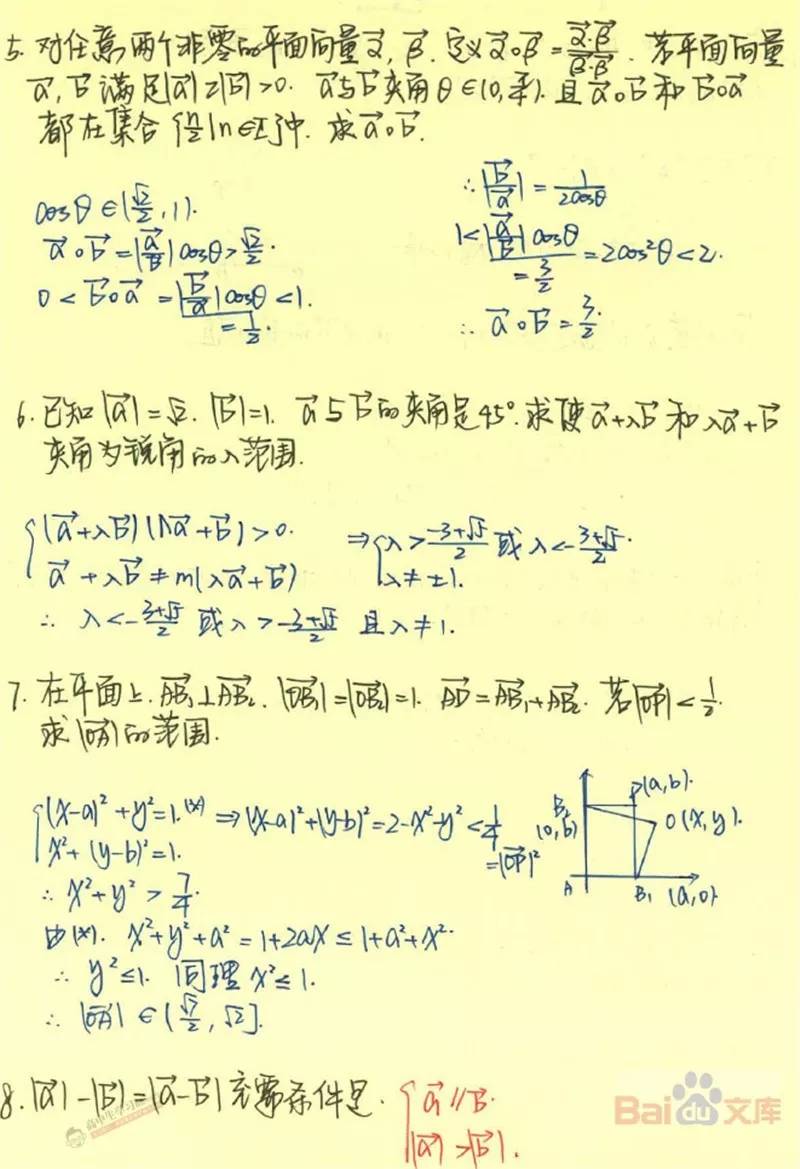 5. 对任意两个非零的平面向量α⃗, β⃗. 定义α⃗∘β⃗ = (α⃗·β⃗)/(β⃗·β⃗). 若平面向量
a⃗, b⃗ 满足|a⃗|≥|b⃗|>0. a⃗与b⃗夹角θ∈(0, π/4). 且a⃗∘b⃗和b⃗∘a⃗
都在集合{n/2|n∈Z}中. 求a⃗∘b⃗.
cosθ∈(√2/2, 1).
a⃗∘b⃗ = |a⃗/b⃗|cosθ > √2/2.
0 < b⃗∘a⃗ = |b⃗/a⃗|cosθ < 1.
= 1/2.
∴ |b⃗/a⃗| = 1/(2cosθ)
1 < |a⃗/b⃗|cosθ = 2cos²θ < 2.
= 3/2
∴ a⃗∘b⃗ = 3/2.
6. 已知|a⃗|=√2. |b⃗|=1. a⃗与b⃗的夹角是45°. 求使a⃗+λb⃗和λa⃗+b⃗
夹角为锐角的λ范围.
{(a⃗+λb⃗)(λa⃗+b⃗)>0. ⇒ {λ>(-3+√5)/2 或 λ<-(3+√5)/2.
a⃗+λb⃗≠m(λa⃗+b⃗) λ≠±1.
∴ λ<-(3+√5)/2 或 λ>(-3+√5)/2 且λ≠1.
7. 在平面上. AB₁⃗⊥AB₂⃗. |OB₁⃗|=|OB₂⃗|=1. AP⃗=AB₁⃗+AB₂⃗. 若|OP⃗|<1/2.
求|OA⃗|的范围.
{(x-a)²+y²=1.(*) ⇒ (x-a)²+(y-b)²=2-x²-y²<1/4
x²+(y-b)²=1. =|OP⃗|²
∴ x²+y²>7/4.
由(*). x²+y²+a²=1+2ax≤1+a²+x².
∴ y²≤1. 同理x²≤1.
∴ |OA⃗|∈(√7/2, √2].
P(a,b).
B₂
(0,b)
O(x,y).
A B₁ (a,0)
8. |a⃗|-|b⃗|=|a⃗-b⃗|充要条件是. {a⃗∥b⃗.
|a⃗|>|b⃗|.
高中生学习
Bai du 文库